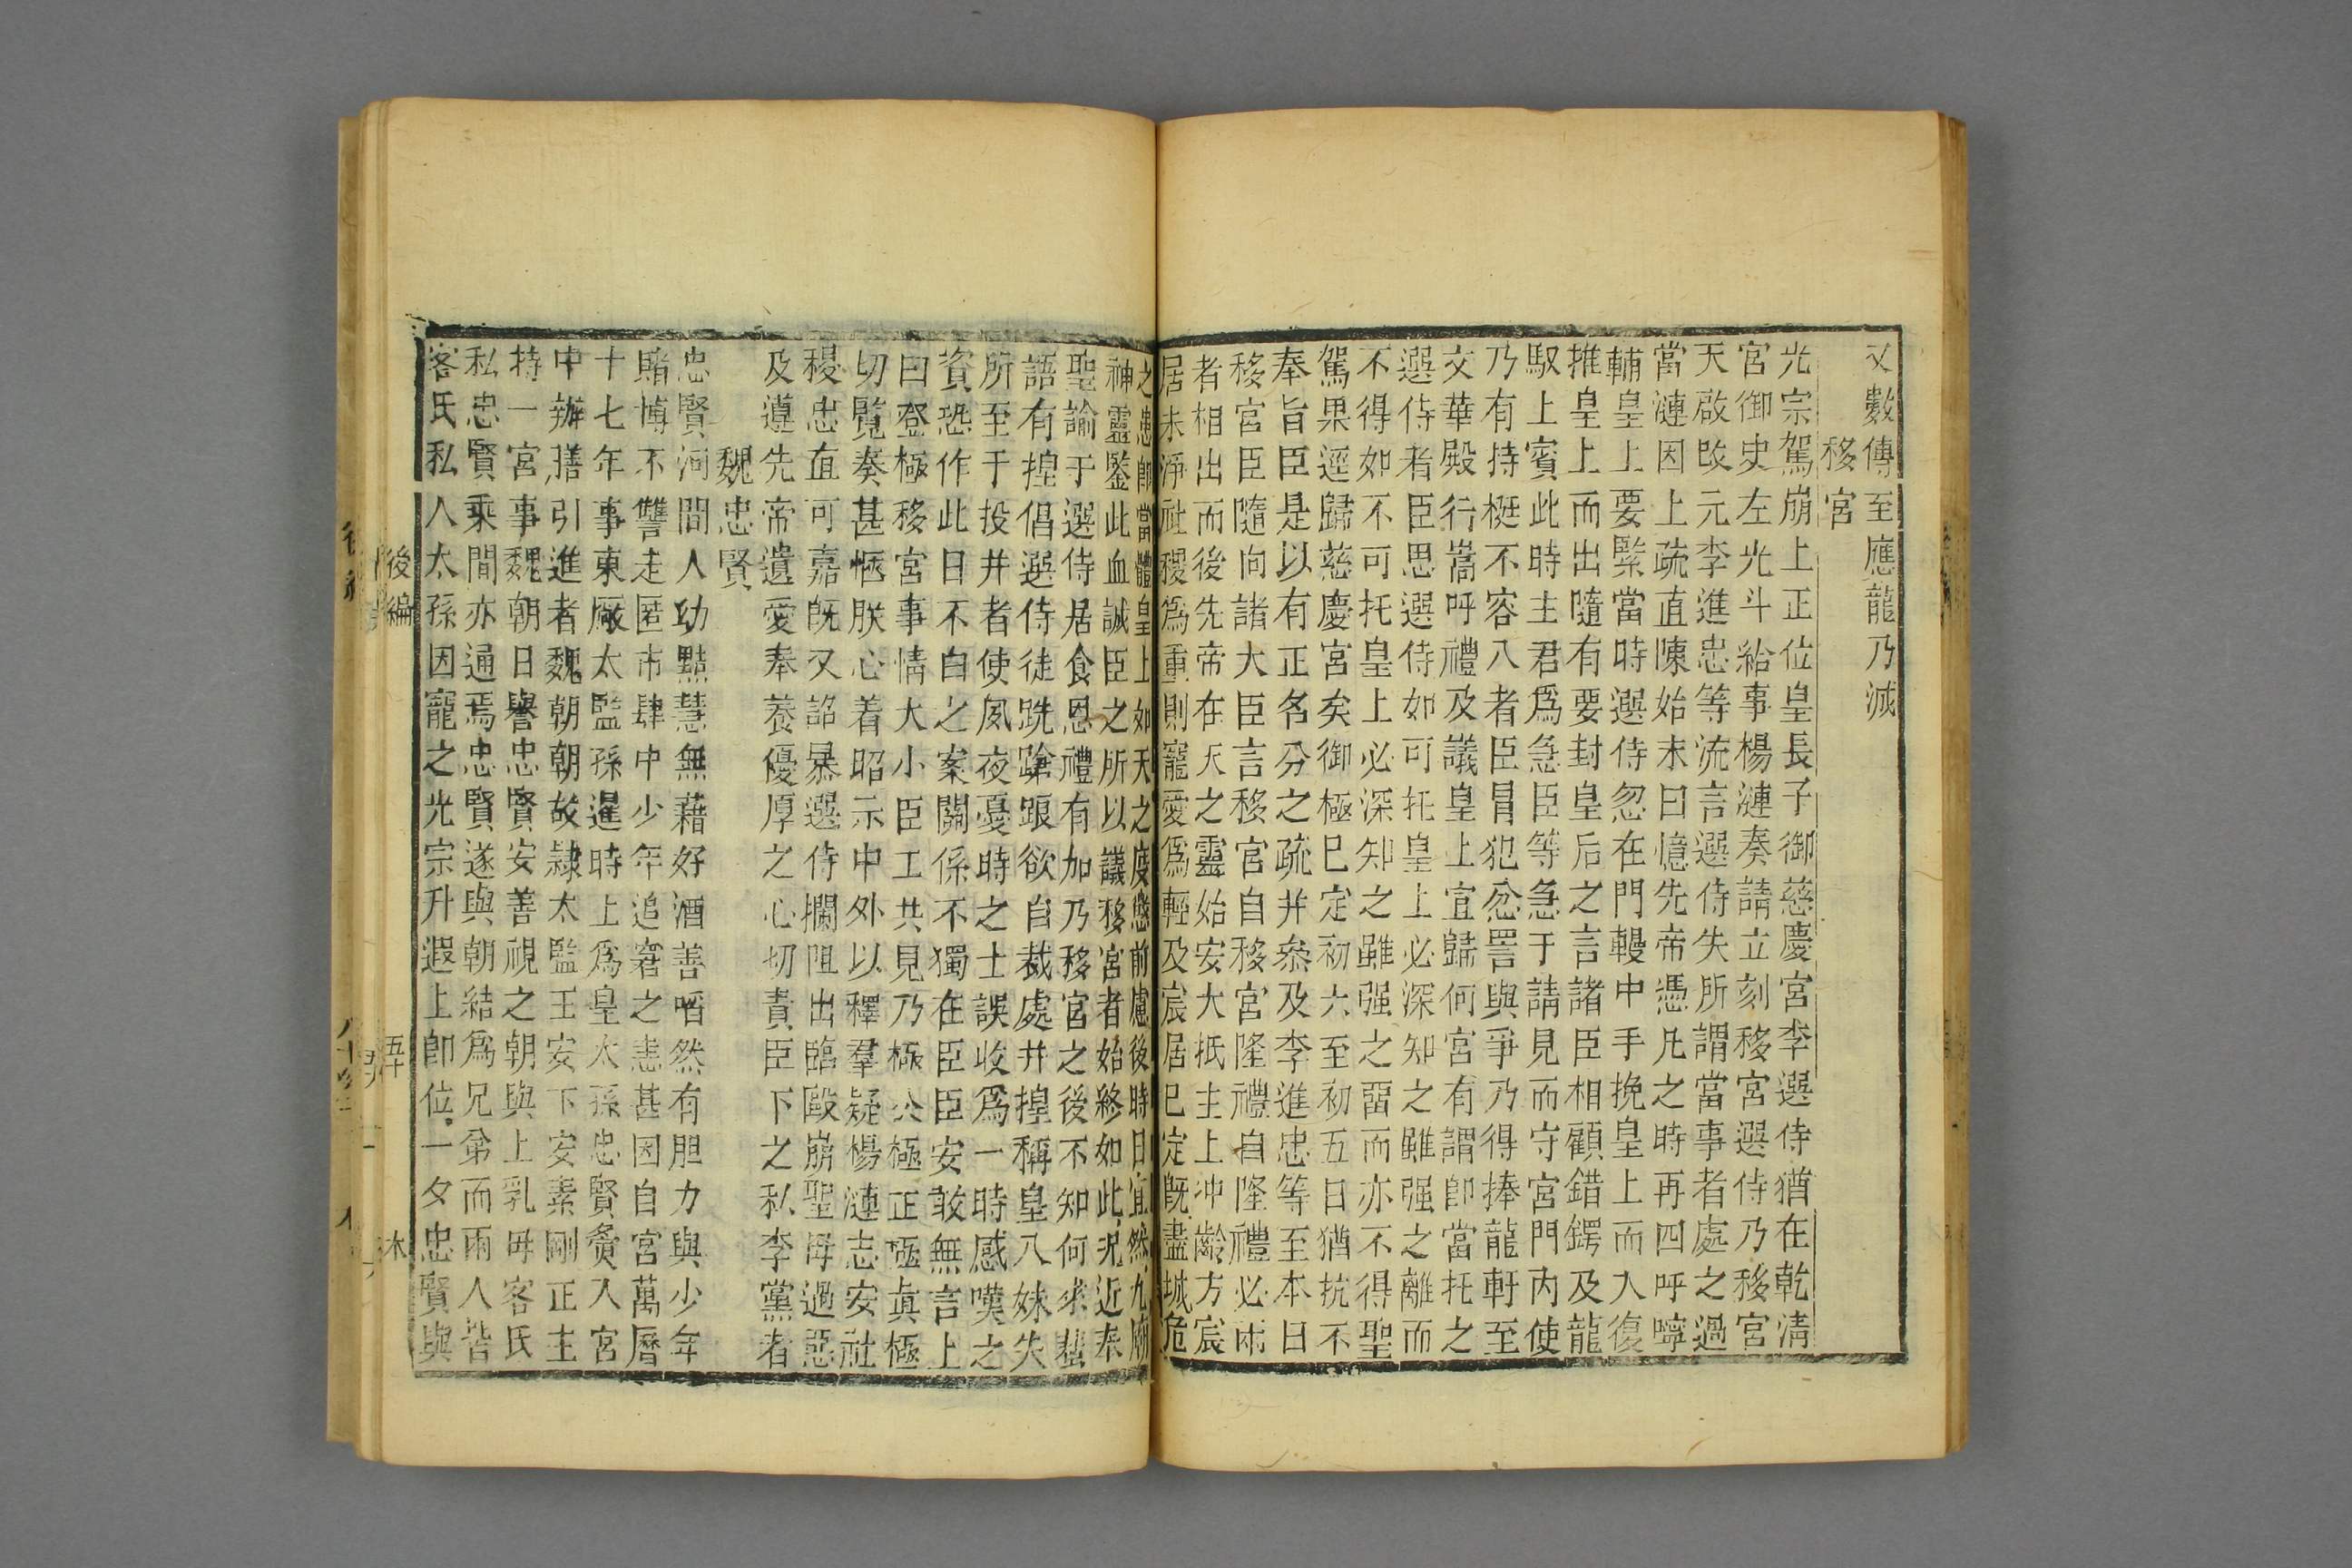 又數傳至應龍乃滅
移宮
光宗駕崩上正位皇長子御慈慶宮李選侍猶在乾清
宮御史左光斗給事楊漣奏請立刻移宮選侍乃移宮
天啟改元李進忠等流言選侍失所謂當事者處之過
當漣因上疏直陳始末曰憶先帝憑几之時再四呼嚀
輔皇上要緊當時選侍忽在門幔中手挽皇上而入復
推皇上而出隨有要封皇后之言諸臣相顧錯鍔及龍
馭上賓此時主君爲急臣等急于請見而守宮門內使
乃有持梃不容入者臣冒犯忿詈與爭乃得捧龍軒至
文華殿行嵩呼禮及議皇上宜歸何宮有謂卽當托之
選侍者臣思選侍如可托皇上必深知之雖强之離而
不得如不可托皇上必深知之雖强之畱而亦不得聖
駕果逕歸慈慶宮矣御極巳定初六至初五日猶抗不
奉旨臣是以有正名分之疏并叅及李進忠等至本日
移宮臣隨向諸大臣言移宮自移宮隆禮自隆禮必兩
者相出而後先帝在天之靈始安大抵主上冲齡方宸
居未淨社稷爲重則寵愛爲輕及宸居巳定旣盡城危
之忠卽當體皇上如天之度懲前慮後時日宜然九廟
神靈鑒此血誠臣之所以議移宮者始終如此況近奉
聖諭于選侍居食恩禮有加乃移宮之後不知何來蜚
語有揑倡選侍徒跣踉蹌欲自裁處井揑稱皇八妹失
所至于投井者使夙夜憂時之士誤收爲一時感嘆之
資恐作此日不白之案關係不獨在臣臣安敢無言上
曰登極移宮事情大小臣工共見乃極公極正極眞極
切覽奏甚愜朕心着昭示中外以釋羣疑楊漣志安社
稷忠直可嘉旣又詔暴選侍攔阻出臨毆崩聖母過惡
及遵先帝遺愛奉養優厚之心切責臣下之私李黨者
魏忠賢
忠賢河間人幼黠慧無藉好酒善啗然有胆力與少年
賭博不讐走匿市肆中少年追窘之恚甚因自宮萬曆
十七年事東廠太監孫暹時上爲皇太孫忠賢夤入宮
中辦膳引進者魏朝朝故隷太監王安下安素剛正主
持一宮事魏朝日譽忠賢安善視之朝與上乳母客氏
私忠賢乘間亦通焉忠賢遂與朝結爲兄弟而兩人皆
客氏私人太孫因寵之光宗升遐上卽位一夕忠賢與
後編
五十
木